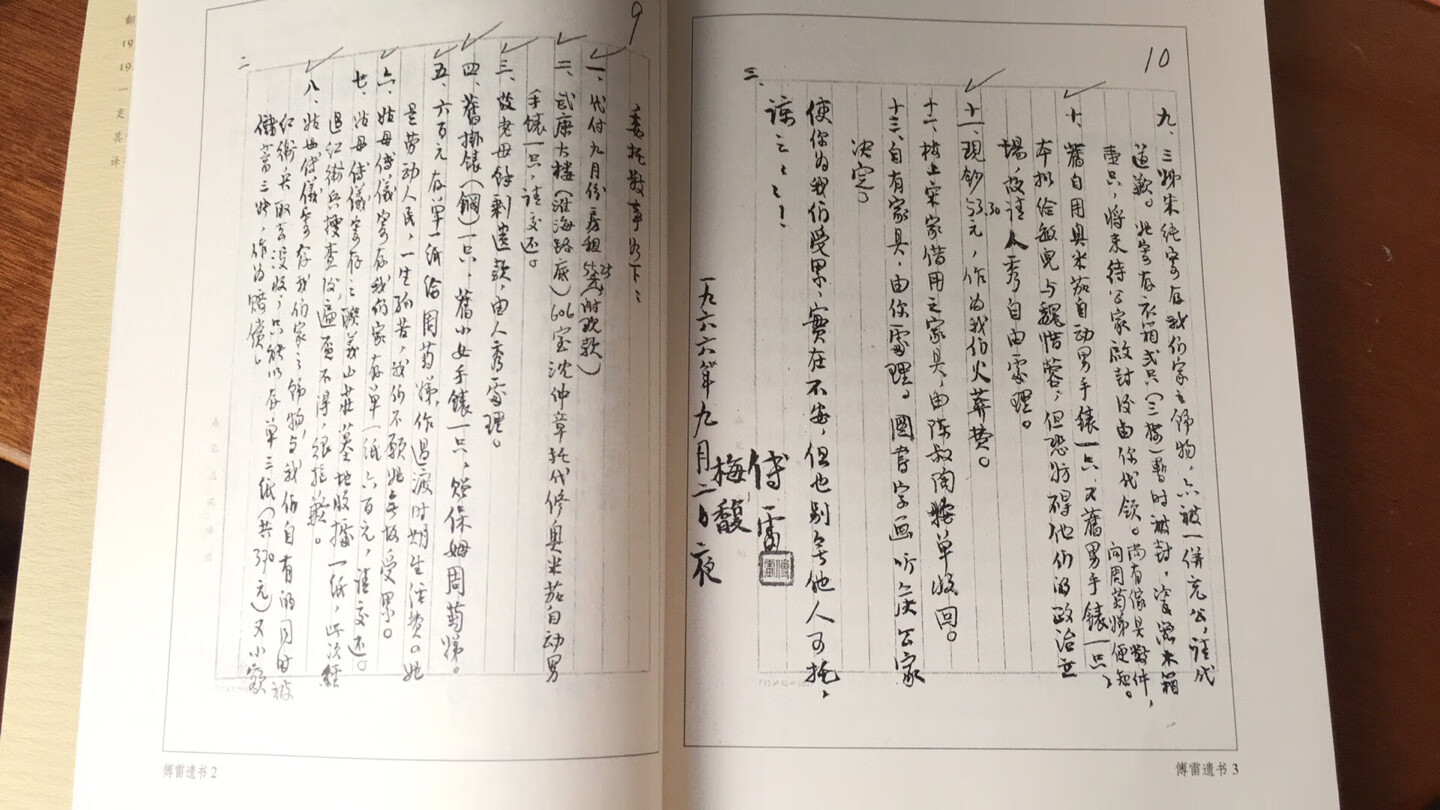 9
二
委托數事如下：
一、代付九月份房租（附現款）
二、武康大楼（淮海路底）606室沈仲章托代修奥米茄自动男
手錶一只，請交还。
三、故老母餘剩遗款，由人秀處理。
四、舊掛錶（鋼）一只，舊小女手錶一只，贈保姆周菊娣。
五、六百元存单一紙給周菊娣，作过渡时期生活费。她
是劳动人民，一生孤苦，我们不願她无故受累。
六、姑母傅儀寄存我们家存单一纸六百元，請交还。
七、姑母傅儀寄存之聯義山莊墓地收據一纸，此次經
过红衛兵搜查後遍覓不得，很抱歉。
八、姑母傅儀寄存我们家之飾物，与我们自有的同时被
红衛兵取去没收，只能以存单三纸（共370元）又小額
儲蓄三张，作为赔償。
傅雷遗书 2
10
三
九、三姊朱纯寄存我们家之飾物，亦被一併充公，請代
道歉。她寄存衣箱弍只（三楼）暫时被封，瓷器木箱
壹只，將来待公家啟封後由你代领。尚有傢具数件，
问周菊娣便知。
十、舊自用奥米茄自动男手錶一只，又舊男手錶一只，
本拟给敏兒与魏惜蓉，但恐妨碍他们的政治立
場，故請人秀自由處理。
十一、現鈔53.30元，作为我们火葬费。
十二、楼上宋家借用之家具，由陈叔陶按单收回。
十三、自有家具，由你處理。圖書字画听候公家
决定。
使你为我们受累，實在不安，但也别无他人可托，
諒之諒之！
傅雷
梅馥
一九六六年九月二日夜
傅雷遗书 3